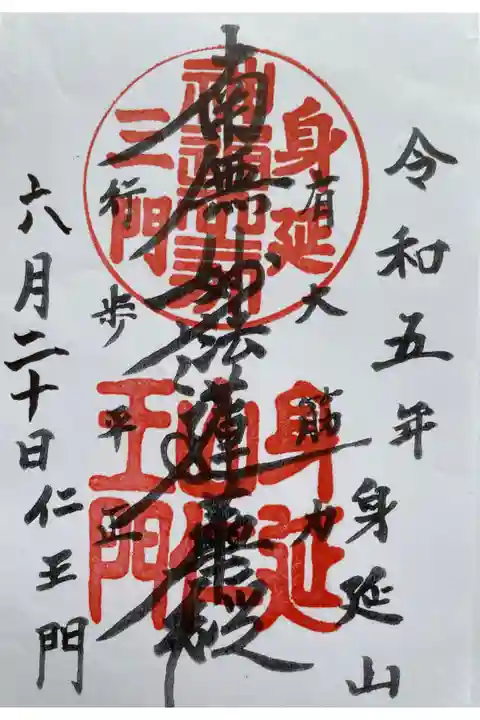 令和五年
身延山
有大筋力
南無妙法蓮華経
行歩平正
六月二十日
仁王門
身延
三門
身延
王門